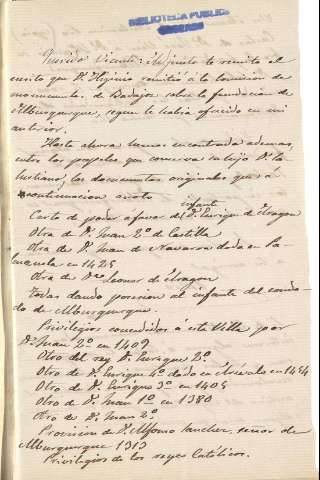 BIBLIOTECA PUBLICA
CACERES
Querido Vicente: Adjunto te remito el
escrito que Dn. Higinio remitió a la Comision de
monumento. de Badajoz sobre la fundacion de
Alburquerque, segun te habia ofrecido en mi
anterior.
Hasta ahora hemos encontrado ademas,
entre los papeles que conserva su hijo Dn.
los documentos originales que á
continuacion anoto
infante
Carta de poder a favor del Dn. Enrique de Aragon
Otra de Dn. Juan 2º de Castilla
Otra de Dn. Juan de Navarra dada en Pa-
lenzuela en 1425
Otra de Dña Leonor de Aragon
Todas dando posesion al infante del conda-
do de Alburquerque.
Privilegios concedidos á esta Villa por
Dn. Juan 2º en 1409
Otro del rey Dn. Enrique 2º.
Otro de Dn. Enrique 4º dado en Arévalo en 1454
Otro de Dn. Enrique 3º en 1405
Otro de Dn. Juan 1º en 1380
Otro de Dn. Juan 2º
Provision de Dn. Alfonso Sanchez, señor de
Alburquerque 1313
Privilegios de los reyes Católicos.